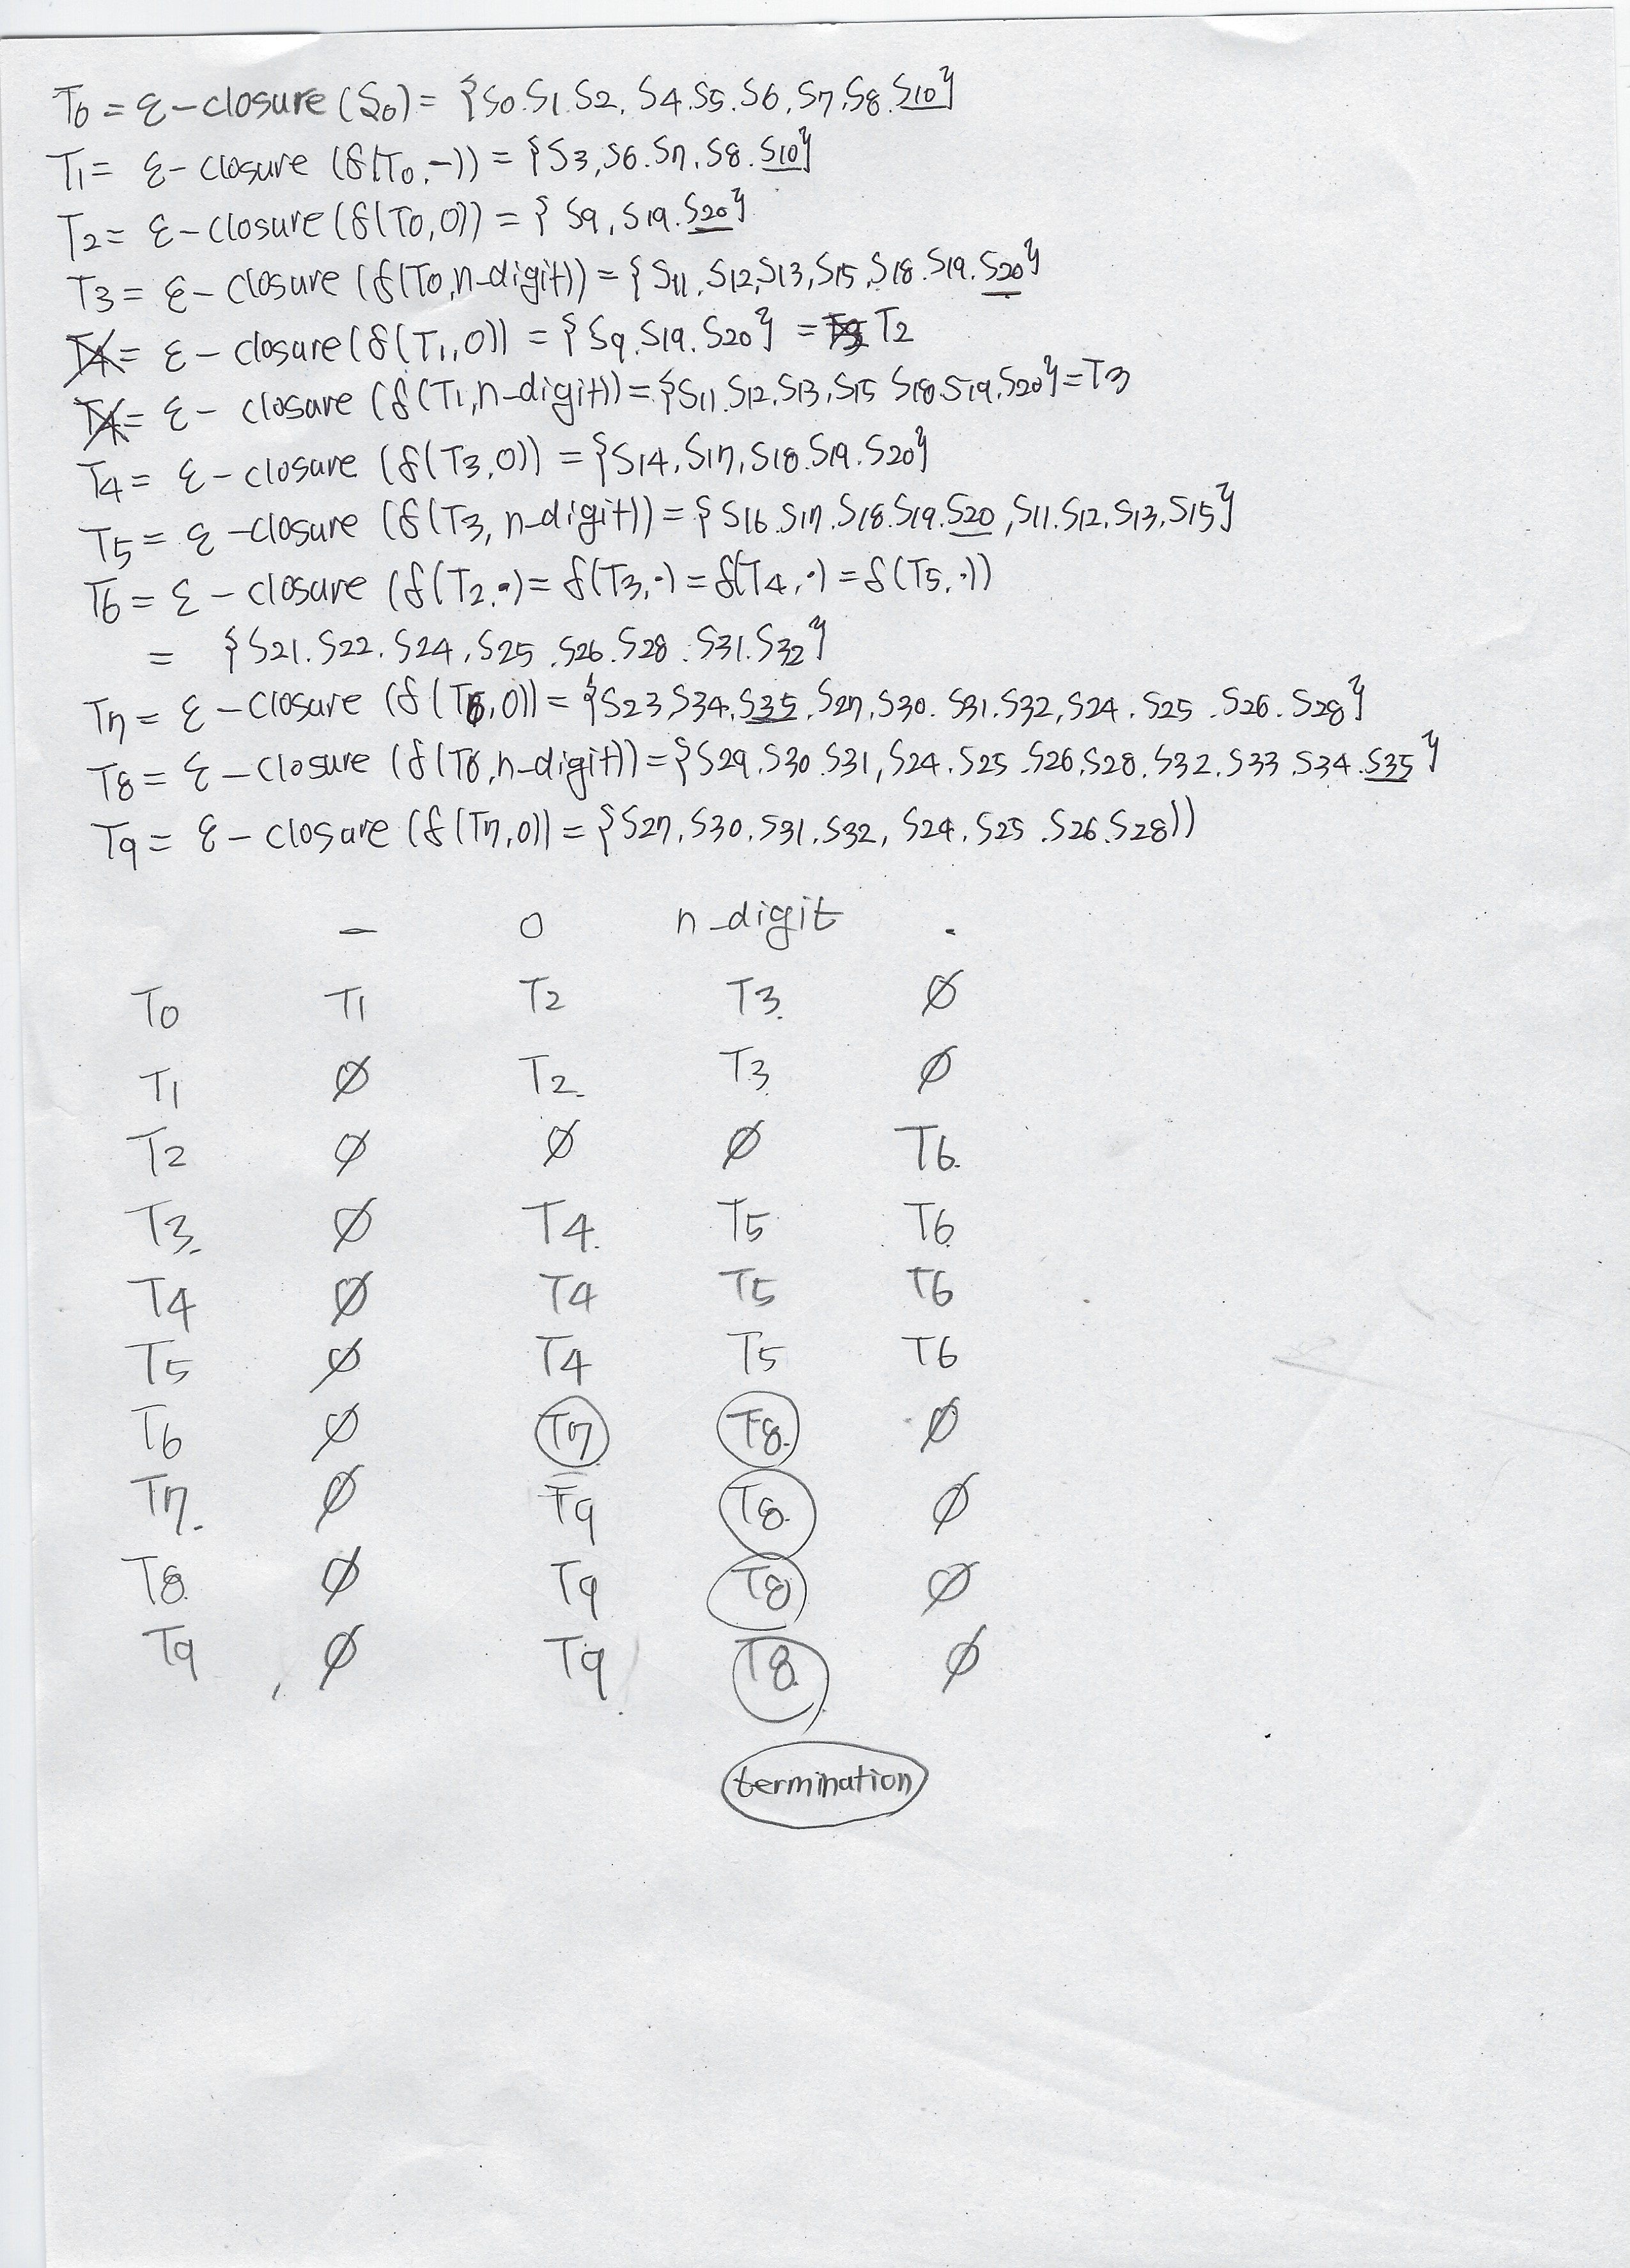 T0 = ε-closure (S0) = {S0.S1.S2, S4.S5.S6,S7,S8.S10}
T1 = ε-closure (δ(T0,-)) = {S3,S6.S7,S8.S10}
T2 = ε-closure (δ(T0,0)) = {S9,S19.S20}
T3 = ε-closure (δ(T0,n-digit)) = {S11,S12,S13,S15,S18.S19.S20}
T4 = ε-closure (δ(T1,0)) = {S9.S19.S20} = T2
T4 = ε-closure (δ(T1,n-digit)) = {S11.S12,S13,S15 S18.S19,S20} = T3
T4 = ε-closure (δ(T3,0)) = {S14,S17,S18.S19.S20}
T5 = ε-closure (δ(T3,n-digit)) = {S16.S17.S18.S19.S20,S11.S12,S13,S15}
T6 = ε-closure (δ(T2,·) = δ(T3,·) = δ(T4,·) = δ(T5,·))
= {S21.S22.S24,S25.S26.S28.S31.S32}
T7 = ε-closure (δ(T6,0)) = {S23,S34,S35,S27,S30.S31.S32,S24.S25.S26.S28}
T8 = ε-closure (δ(T6,n-digit)) = {S29,S30.S31,S24.S25.S26,S28,S32.S33.S34.S35}
T9 = ε-closure (δ(T7,0)) = {S27,S30,S31.S32, S24,S25.S26.S28))
- 0 n-digit .
T0 T1 T2 T3 ∅
T1 ∅ T2 T3 ∅
T2 ∅ ∅ ∅ T6
T3 ∅ T4 T5 T6
T4 ∅ T4 T5 T6
T5 ∅ T4 T5 T6
T6 ∅ T7 T8 ∅
T7 ∅ T9 T8 ∅
T8 ∅ T9 T8 ∅
T9 ∅ T9 T8 ∅
termination